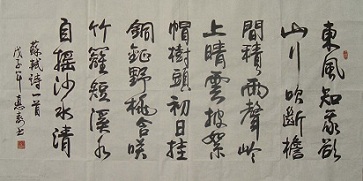 東風知我欲
山行吹斷檐
間積雨聲岭
上晴雲披絮
帽樹頭初日挂
銅鉦野桃含咲
竹籬短溪水
自摇沙水清
蘇軾詩一首
戊子年